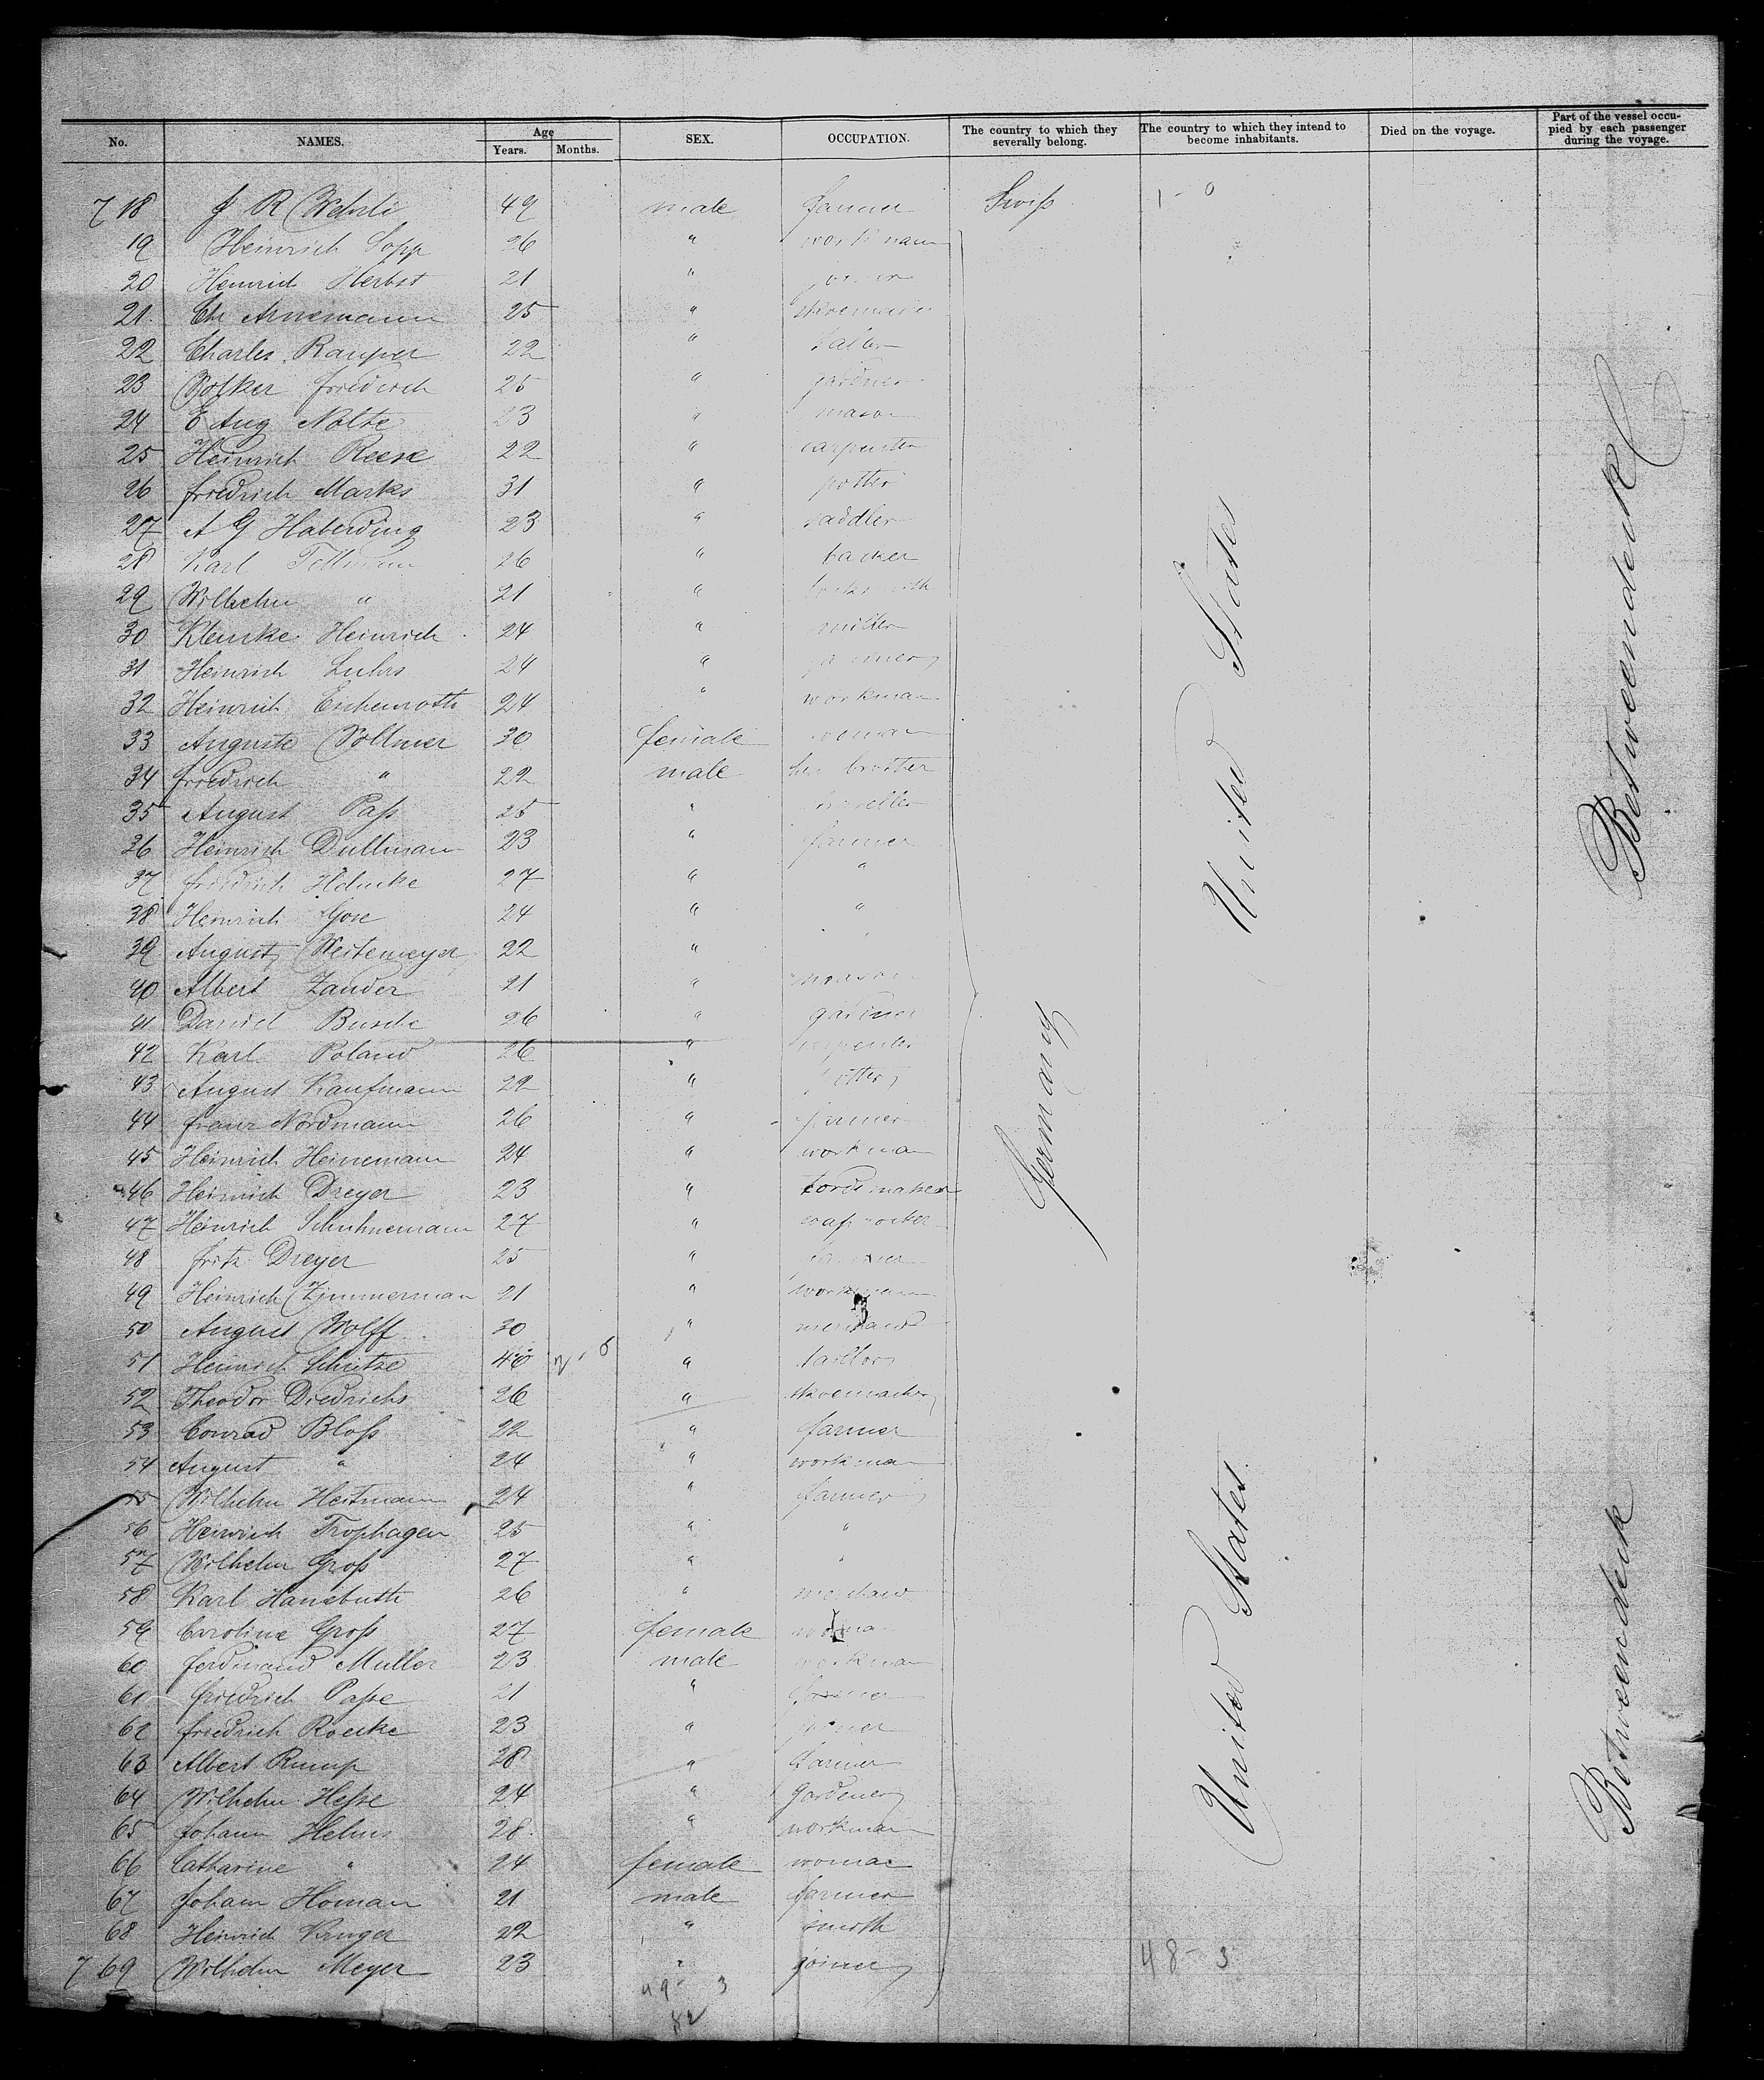 No. NAMES. Age Years. Months. SEX. OCCUPATION. The country to which they severally belong. The country to which they intend to become inhabitants. Died on the voyage. Part of the vessel occupied by each passenger during the voyage.
7 18 J R Wehrli 49 male farmer Swiss 1 - 0
19 Heinrich Sopp 26 " workman
20 Heinrich Herbst 21 "
21. Chr Arnemann 25 " shoemaker
22 Charles Kamper 22 "
23 Volker Friedrich 25 " gardner
24 E Aug Nolte 23 " mason
25 Heinrich Reese 22 " carpenter
26 Friedrich Marks 31 " potter
27 A G Haberding 23 " saddler
28 Karl 26 " backer
29 Wilhelm " 21 "
30 Klenske Heinrich 24 " miller
31 Heinrich Luhrs 24 "
32 Heinrich Eichenroth 24 " workman
33 Auguste Vollmer 30 female woman
34 Friedrich " 22 male her brother
35 August Paſs 25 "
36 Heinrich Dullman 23 " farmer
37 Friedrich 27 " "
38 Heinrich Gose 24 " "
39 August Westemeyer 22 " "
40 Albert Zander 21 "
41 Daniel Busche 26 " gardner
42 Karl Poland 26 " carpenter
43 August Kaufmann 22 " potter
44 Franz Nordmann 26 " farmer
45 Heinrich Heinemann 24 " workman
46 Heinrich Dreyer 23 "
47 Heinrich Schuhnemann 27 "
48 Fritz Dreyer 25 "
49 Heinrich Zimmerman 21 " workman
50 August Wolff 30 "
51 Heinrich Schütze 40 " taillor
52 Theodor Diedrichs 26 " shoemacker
53 Conrad Bloſs 22 " farmer
54 August " 24 " workman
55 Wilhelm Heitmann 24 " farmer
56 Heinrich Trophagen 25 " "
57 Wilhelm Groſs 27 " "
58 Karl Hansbuth 26 "
59 Caroline Groſs 27 female woman
60 Ferdinand Muller 23 male workman
61 Friedrich Paſse 21 " farmer
62 Friedrich Roeske 23 "
63 Albert Rump 28 " farmer
64 Wilhelm Heſse 24 " gardener
65 Johann Helms 28 " workman
66 Catharine " 24 female woman
67 Johann Homan 21 male farmer
68 Heinrich Kruger 22 " smith
7 69 Wilhelm Meyer 23 " joiner
49 - 3
52
48 - 3
Germany
United States
United States
Betweendeck
Betweendeck